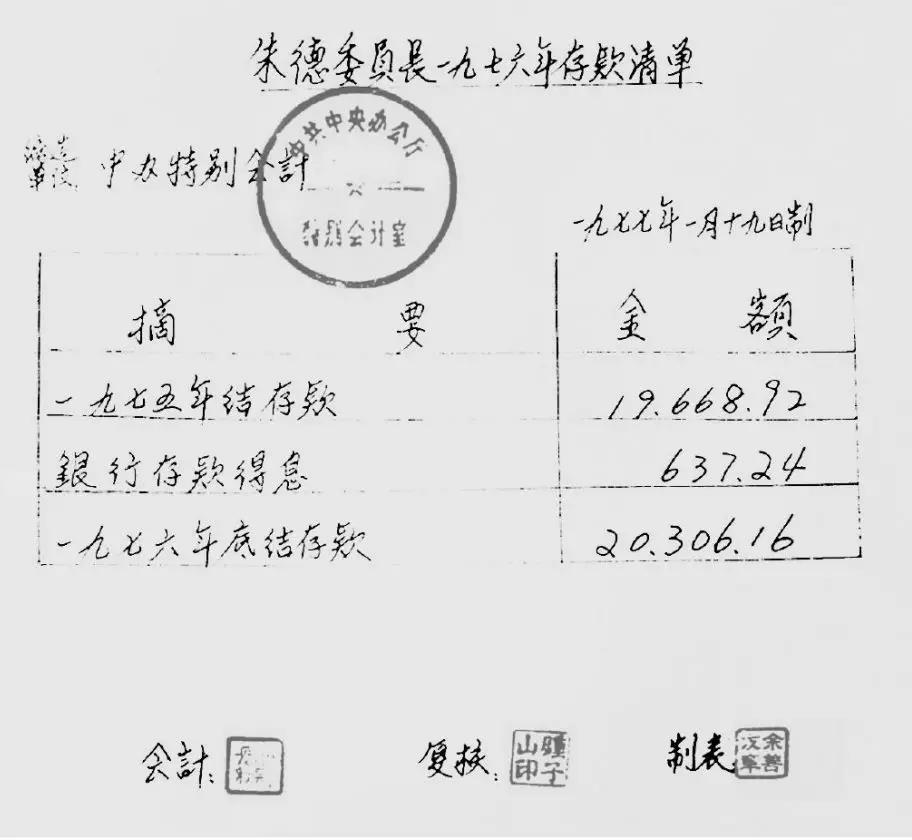 朱德委員長一九七六年存款清单
中共中央办公厅
中办特别会計
特别会计室
一九七七年一月十九日制
摘 要 金 額
一九七五年结存款 19.668.92
銀行存款得息 637.24
一九七六年底结存款 20.306.16
会計:
复核: 山印
制表 余善